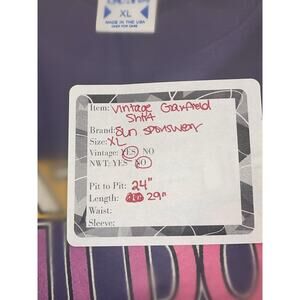 XL
MADE IN THE USA
Item: Vintage Garfield
Shirt
Brand: Sun sportswear
Size: XL
Vintage: YES NO
NWT: YES NO
Pit to Pit: 24"
Length: 29"
Waist:
Sleeve: